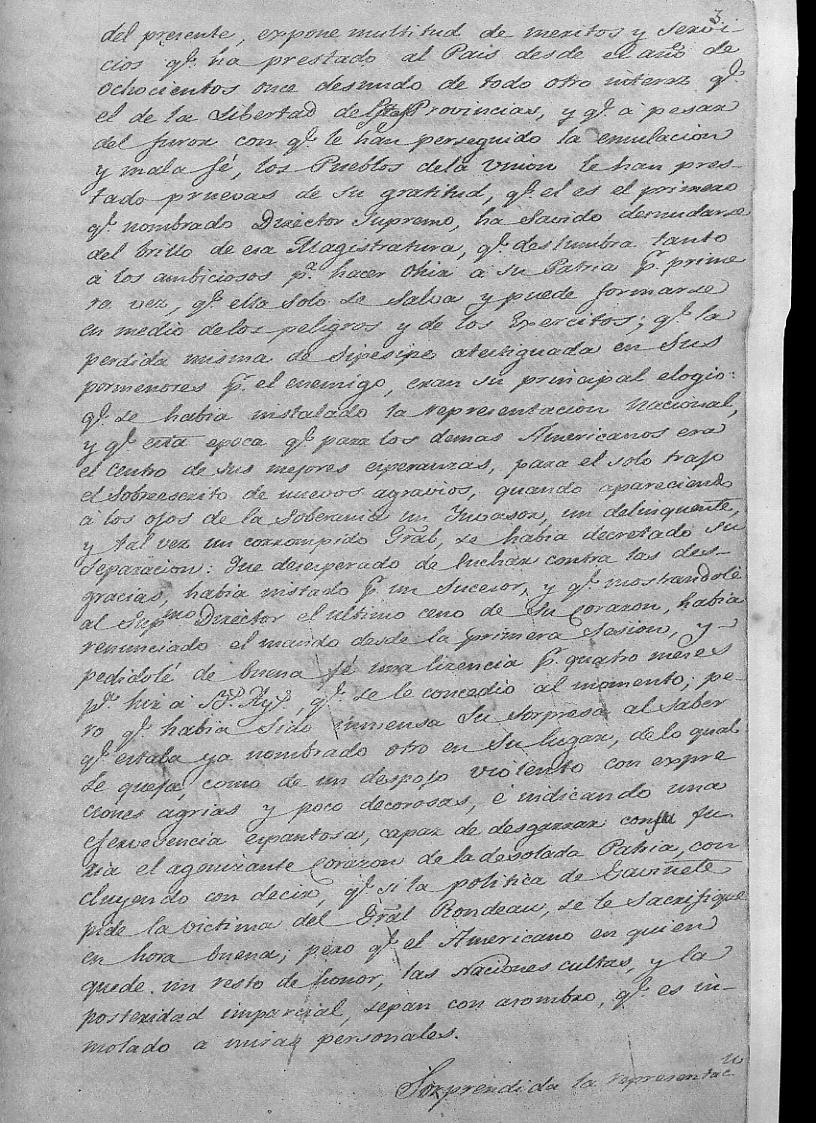 3.
del presente, expone multitud de meritos y servi-
cios q.e ha prestado al Pais desde el año de
ochocientos once desnudo de todo otro interes q.e
el de la Libertad de estas Provincias, y q.e a pesar
del furor con q.e le han perseguido la emulacion
y mala fé, los Pueblos dela Union le han pres-
tado pruevas de su gratitud, q.e el es el primero
q.e nombrado Director Supremo, ha savido desnudarse
del brillo de esa Magistratura, q.e deslumbra tanto
á los ambiciosos p.a hacer vér á su Patria p.r prime
ra vez, q.e ella solo se salva y puede formarse
en medio delos peligros y de los Exercitos; q.e la
perdida misma de Sipesipe atestiguada en sus
pormenores p.r el enemigo, eran su principal elogio:
q.e se habia instalado la representacion Nacional,
y q.e esta epoca q.e para los demas Americanos era
el centro de sus mejores esperanzas, para el solo trajo
el sobreescrito de nuevos agravios, quando apareciendo
á los ojos de la Soberania un Invasor, un delinquente,
y tal vez un corrompido Gral, se habia decretado su
separacion: Que desesperado de luchar contra las des-
gracias, habia instado p.r un sucesor, y q.e mostrandolé
al Sup.mo Director el ultimo ceno de su Corazon, habia
renunciado el mando desde la primera sesion, y
pedidolé de buena fé una lizencia p.r quatro meses
p.a hir á B.s Ay.s, q.e se le concedio al momento; pe-
ro q.e habia sido inmensa su sorpresa al saber
q.e estaba ya nombrado otro en su lugar, de lo qual
se queja, como de un despojo violento con expre
ciones agrias y poco decorosas, é indicando una
efervescencia espantosa, capaz de desgarrar con su fu
ria el agonizante Corazon de la desolada Patria, con
cluyendo con decir, q.e si la politica de Gavinete
pide la victima del Gral Rondeau, se le sacrifique
en hora buena; pero q.e el Americano en quien
quede un resto de honor, las Naciones cultas, y la
posteridad imparcial, sepan con asombro, q.e es in-
molado a miras personales.
Sorprendida la representac.n